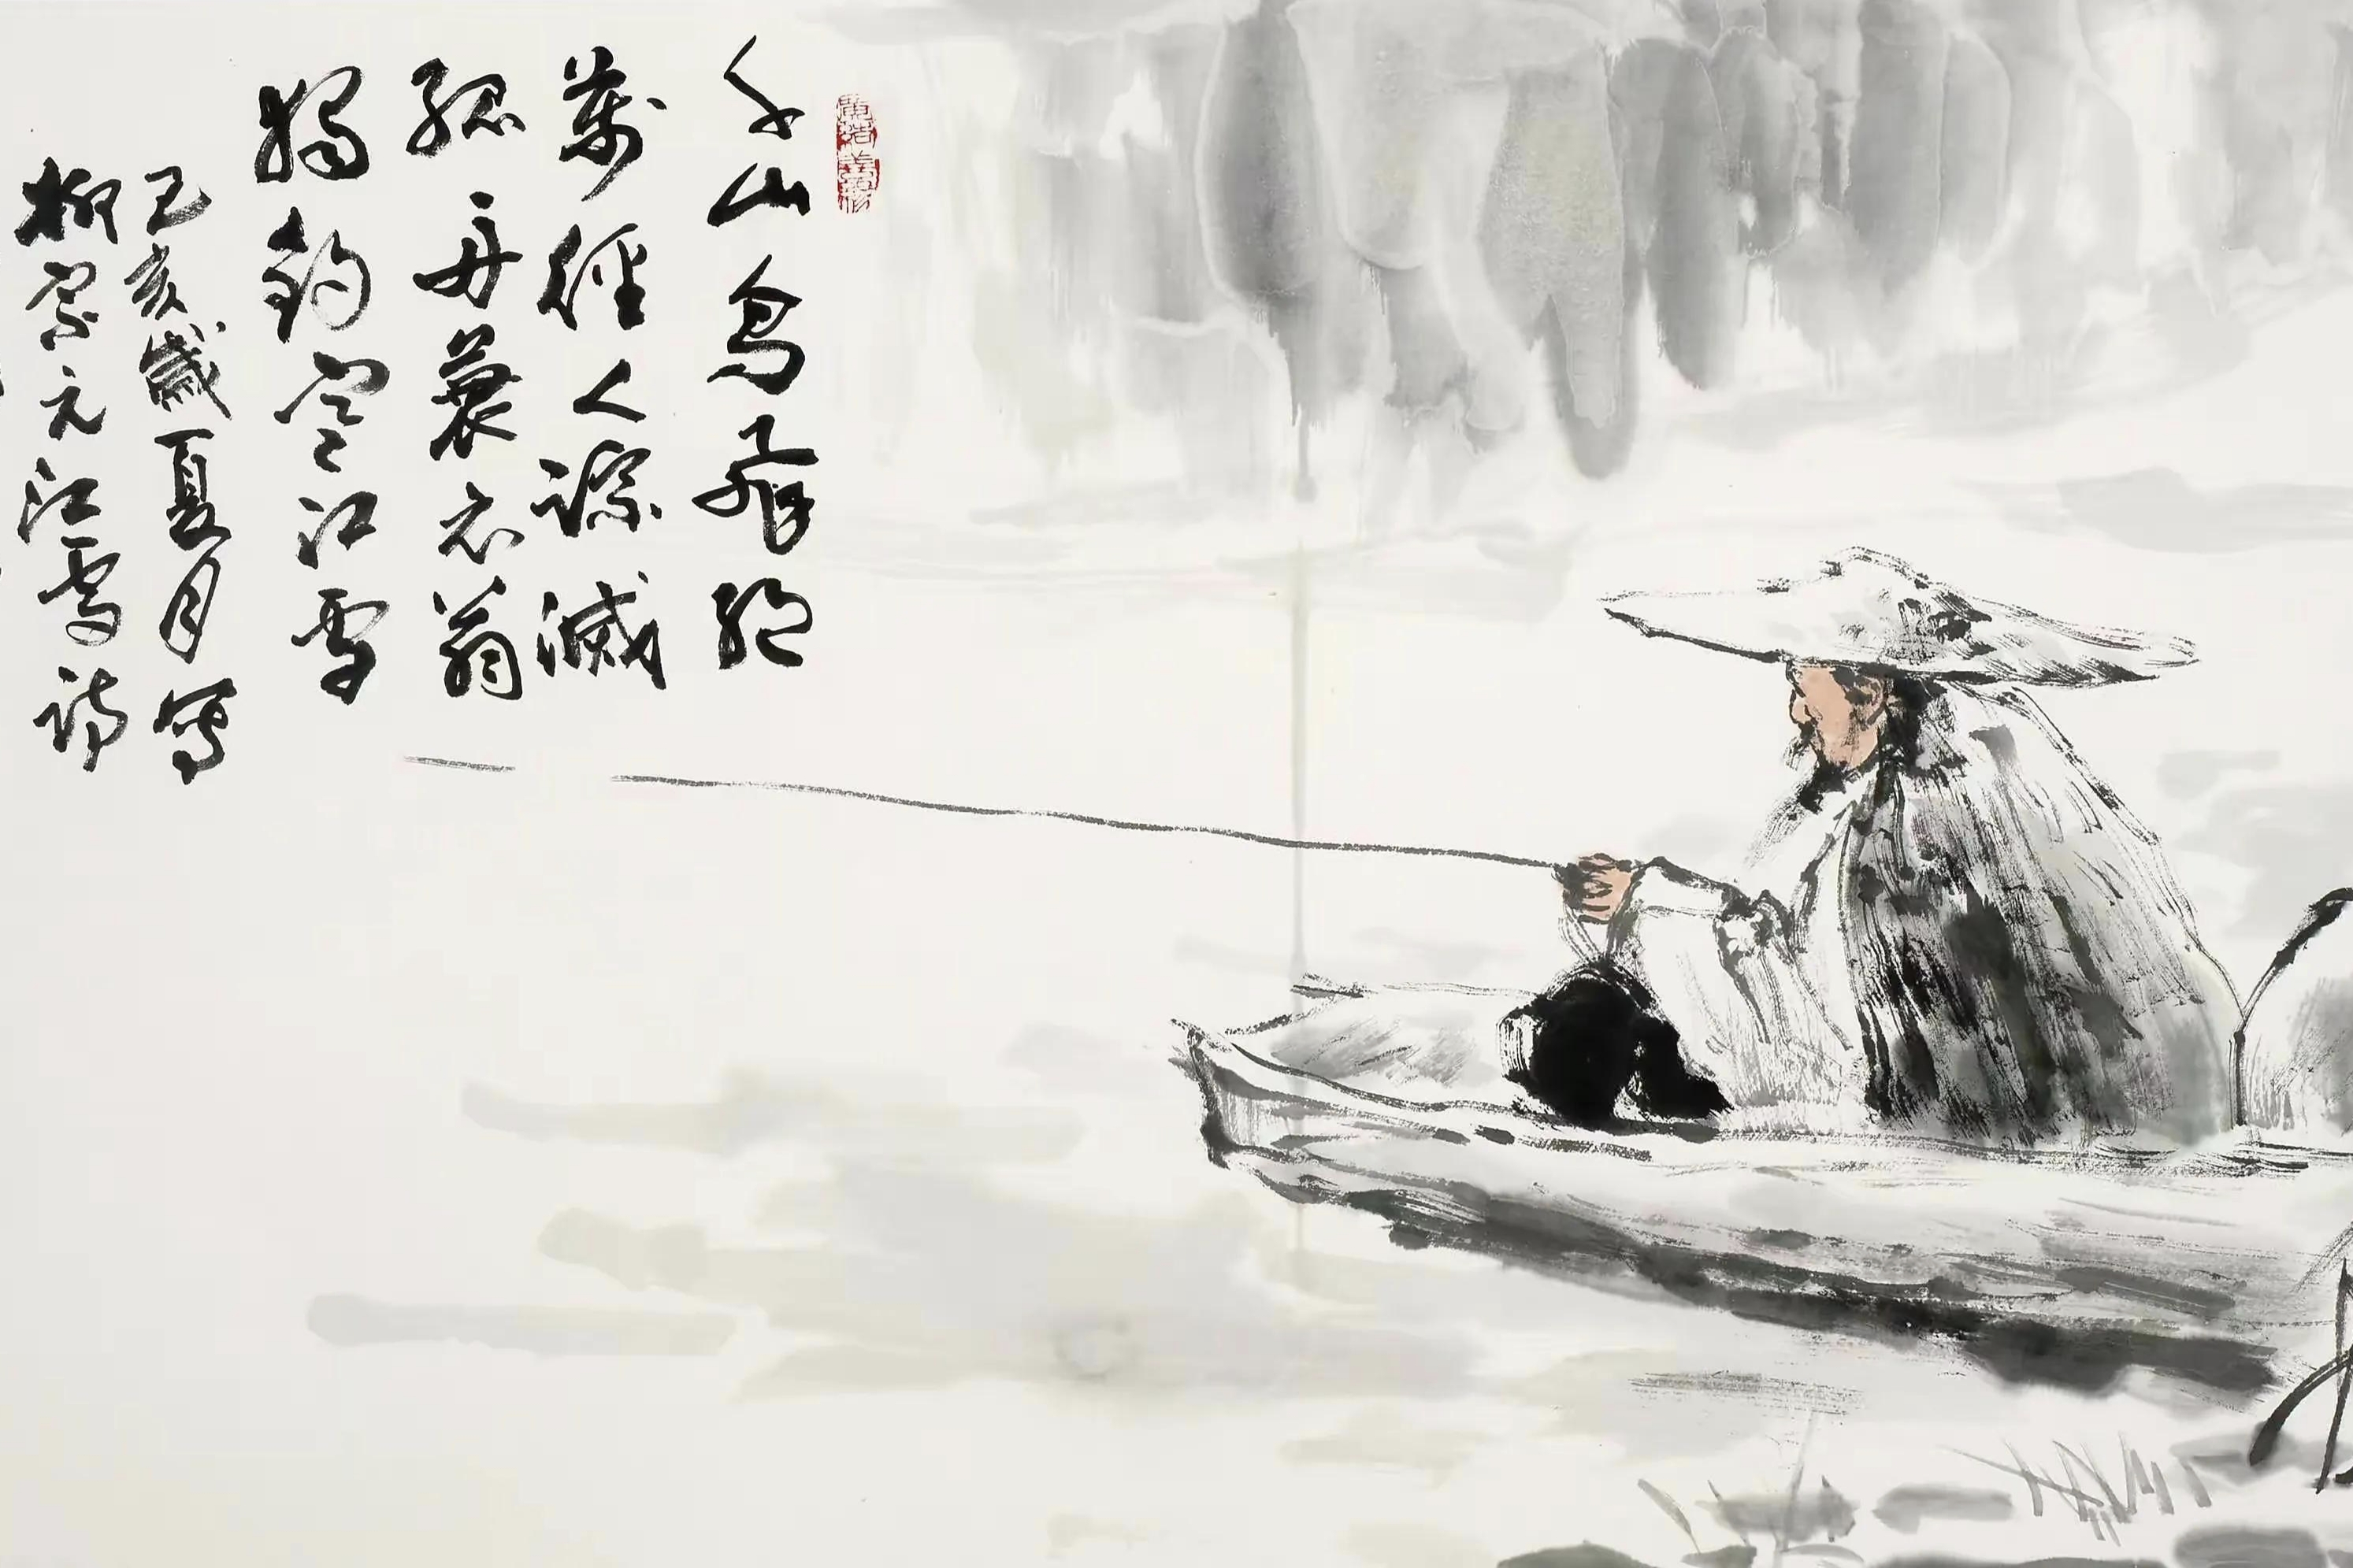 千山鳥飛絕
萬徑人踪滅
孤舟蓑衣翁
獨釣寒江雪
己亥歲夏月寫
柳宗元江雪詩